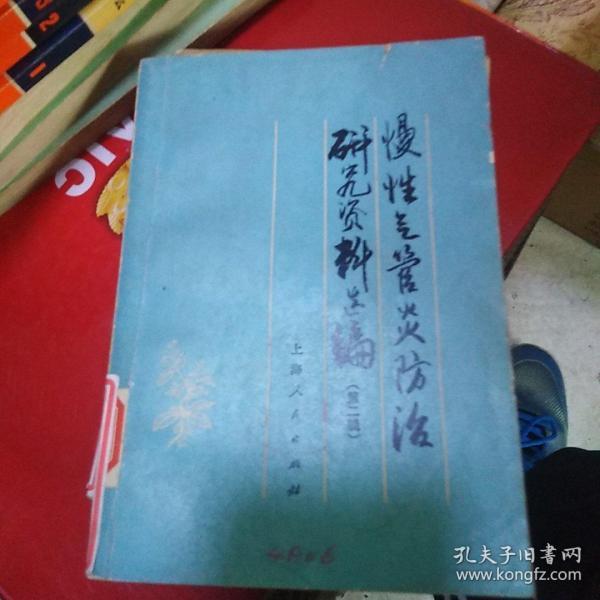 慢性气管炎防治
研究资料选编
(第二辑)
上海人民出版社
孔夫子旧书网
www.kongfz.com